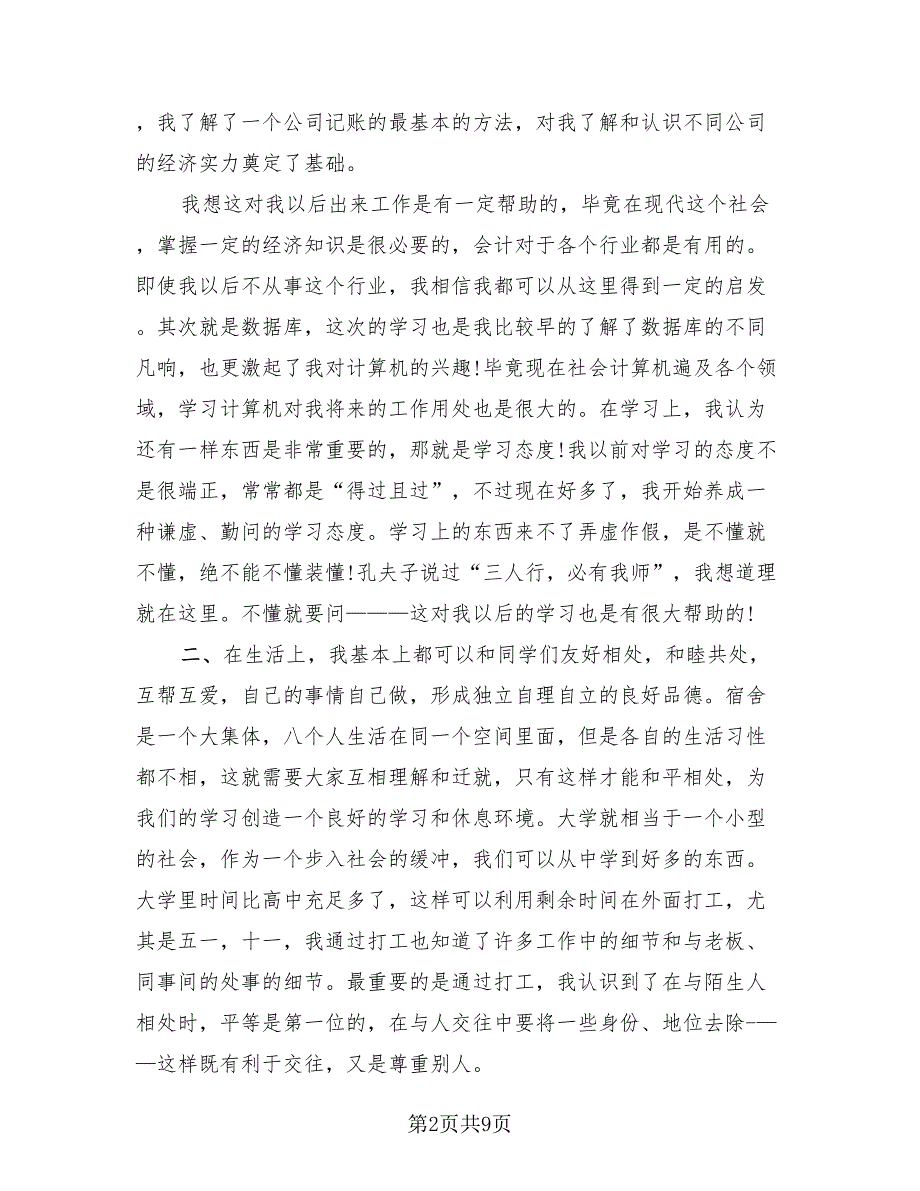 ，我了解了一个公司记账的最基本的方法，对我了解和认识不同公司
的经济实力奠定了基础。
我想这对我以后出来工作是有一定帮助的，毕竟在现代这个社会
，掌握一定的经济知识是很必要的，会计对于各个行业都是有用的。
即使我以后不从事这个行业，我相信我都可以从这里得到一定的启发
。其次就是数据库，这次的学习也是我比较早的了解了数据库的不同
凡响，也更激起了我对计算机的兴趣!毕竟现在社会计算机遍及各个领
域，学习计算机对我将来的工作用处也是很大的。在学习上，我认为
还有一样东西是非常重要的，那就是学习态度!我以前对学习的态度不
是很端正，常常都是“得过且过”，不过现在好多了，我开始养成一
种谦虚、勤问的学习态度。学习上的东西来不了弄虚作假，是不懂就
不懂，绝不能不懂装懂!孔夫子说过“三人行，必有我师”，我想道理
就在这里。不懂就要问———这对我以后的学习也是有很大帮助的!
二、在生活上，我基本上都可以和同学们友好相处，和睦共处，
互帮互爱，自己的事情自己做，形成独立自理自立的良好品德。宿舍
是一个大集体，八个人生活在同一个空间里面，但是各自的生活习性
都不相，这就需要大家互相理解和迁就，只有这样才能和平相处，为
我们的学习创造一个良好的学习和休息环境。大学就相当于一个小型
的社会，作为一个步入社会的缓冲，我们可以从中学到好多的东西。
大学里时间比高中充足多了，这样可以利用剩余时间在外面打工，尤
其是五一，十一，我通过打工也知道了许多工作中的细节和与老板、
同事间的处事的细节。最重要的是通过打工，我认识到了在与陌生人
相处时，平等是第一位的，在与人交往中要将一些身份、地位去除-—
—这样既有利于交往，又是尊重别人。
第2页共9页